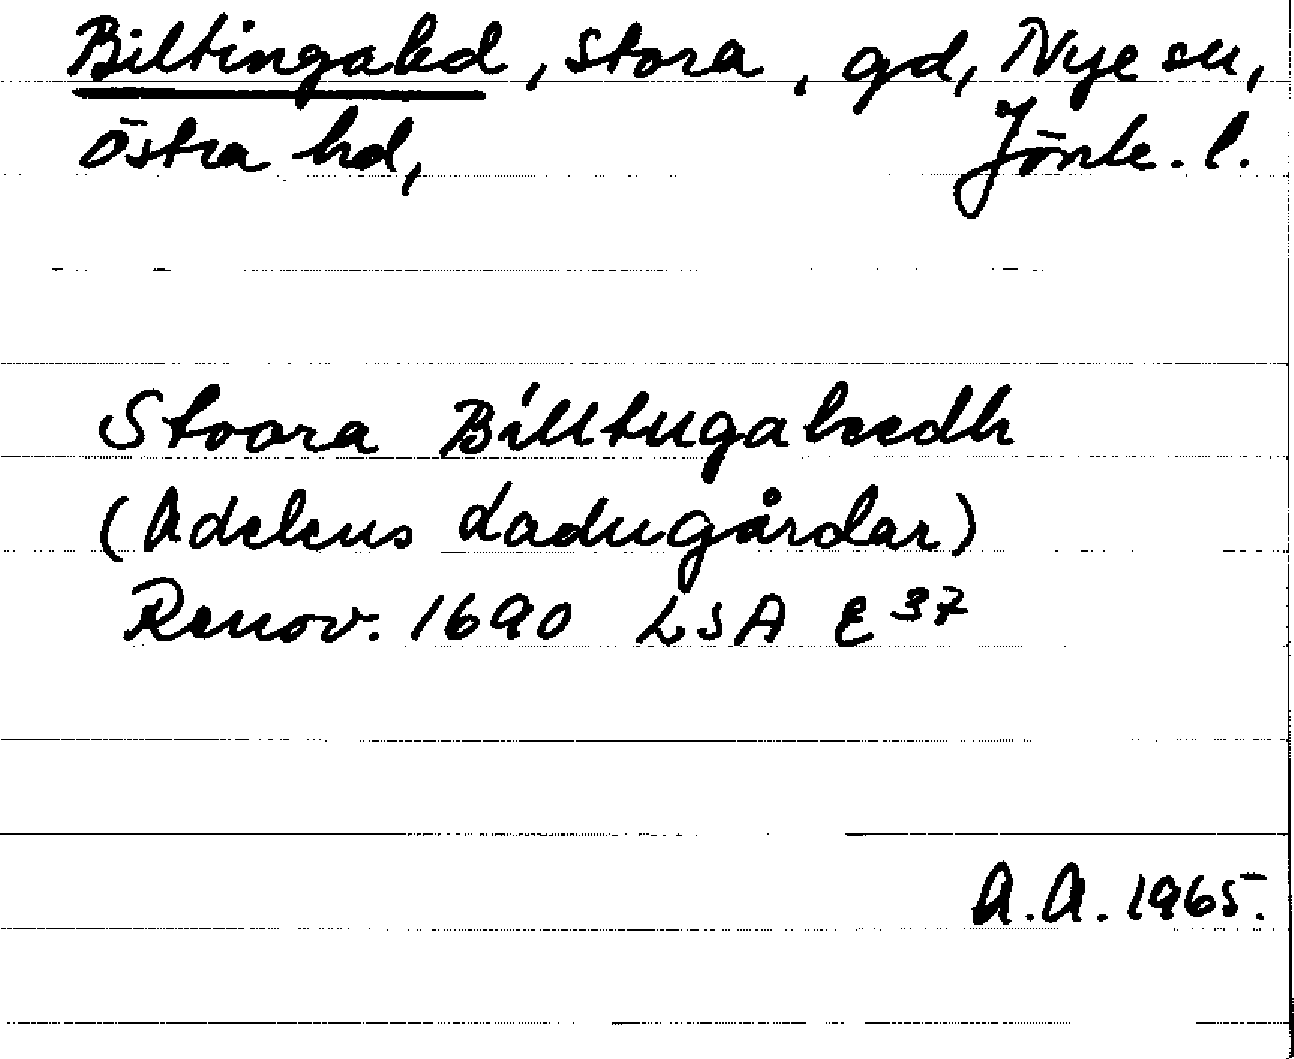 Biltingahed, Stora, gd, Nye sn,
Östra hd, Jönk. l.
Stoora Billtingaheedh
(Adelens Ladugårdar)
Renov. 1690 LSA E 37
A.A. 1965.